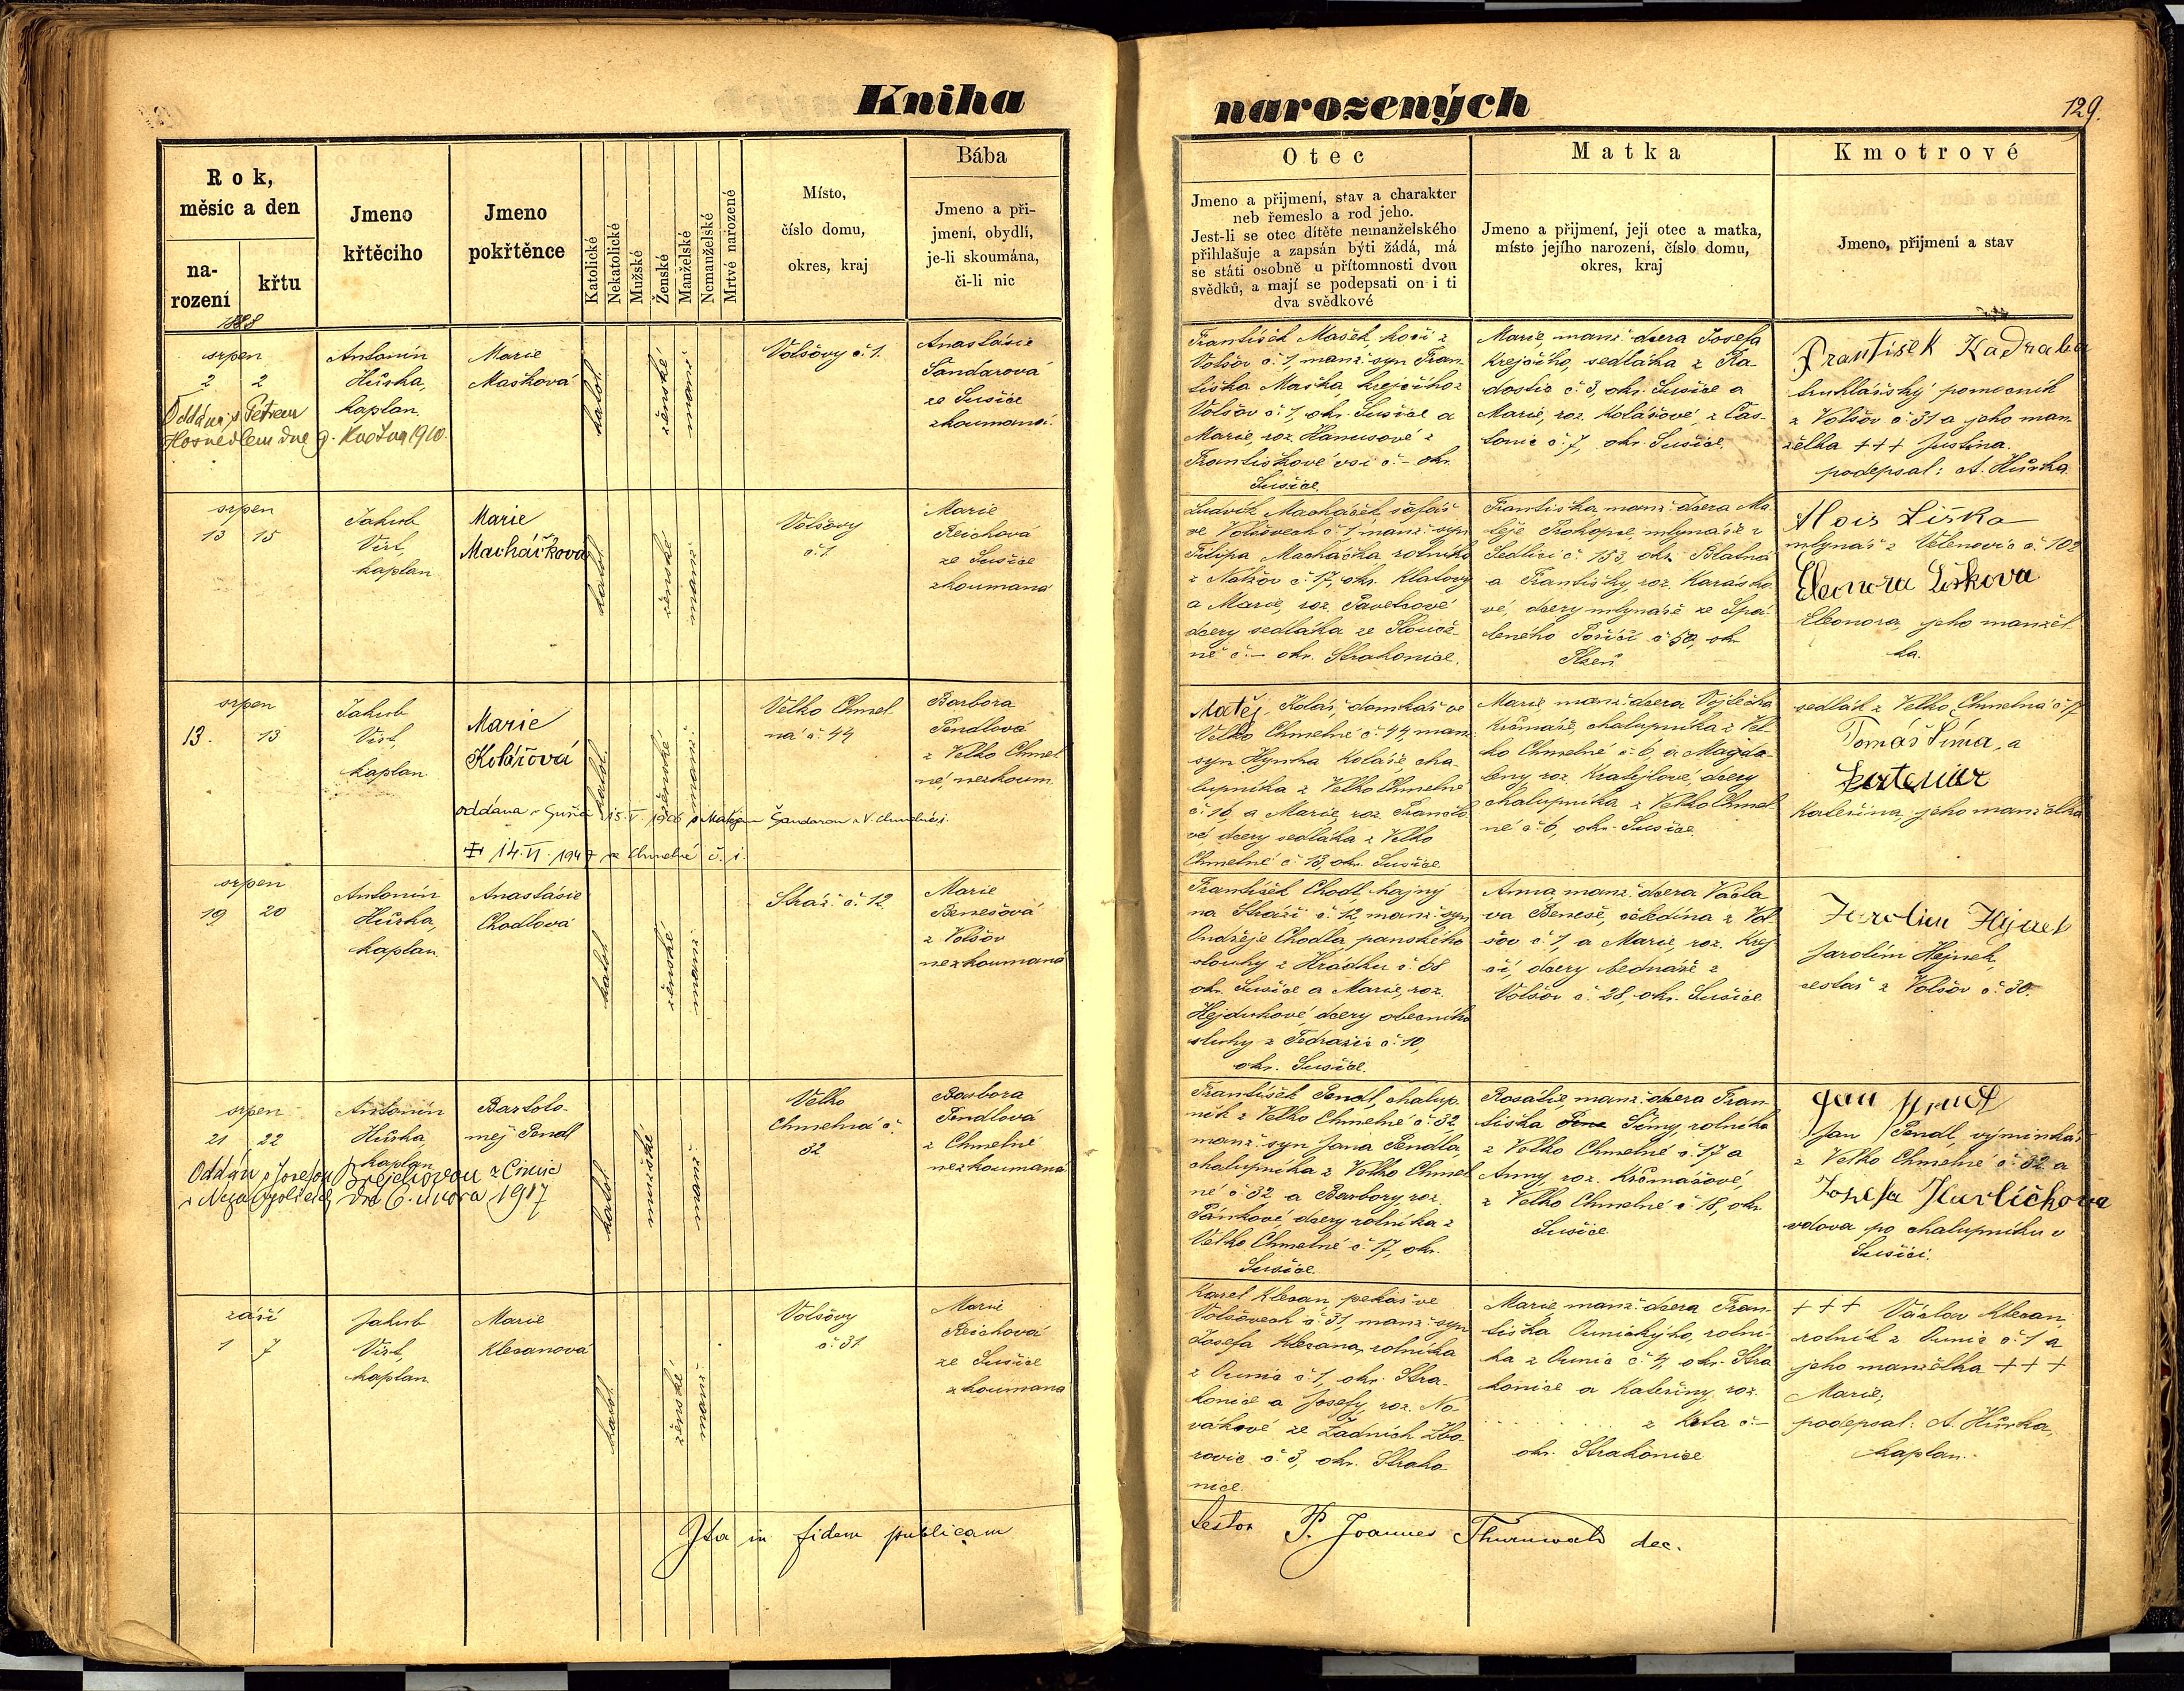 Kniha
narozených
129.
Rok,
měsíc a den
na-
rození
křtu
1888
Jmeno
křtěcího
Jmeno
pokřtěnce
Katolické
Nekatolické
Mužské
Ženské
Manželské
Nemanželské
Mrtvé narozené
Místo,
číslo domu,
okres, kraj
Bába
Jmeno a při-
jmení, obydlí,
je-li skoumána,
či-li nic
Otec
Jmeno a přijmení, stav a charakter
neb řemeslo a rod jeho.
Jest-li se otec dítěte nemanželského
přihlašuje a zapsán býti žádá, má
se státi osobně u přítomnosti dvou
svědků, a mají se podepsati on i ti
dva svědkové
Matka
Jmeno a přijmení, její otec a matka,
místo jejího narození, číslo domu,
okres, kraj
Kmotrové
Jmeno, přijmení a stav
srpen
2 2
Oddána s Petrem
Hosnedlem dne 9. května 1910.
Antonín
Hůrka,
kaplan
Marie
Mašková
katol.
ženské
manž.
Volšovy č. 1.
Anastásie
Šandarová
ze Sušice
zkoumaná.
František Mašek, kočí z
Volšov č. 1, manž. syn Fran-
tiška Maška, krejčího z
Volšov č. 1, okr. Sušice a
Marie, roz. Hanusové z
Františkové vsi č. – okr.
Sušice.
Marie, manž. dcera Josefa
Krejčího, sedláka z Ra-
dostic č. 3, okr. Sušice a
Marie, roz. Kolářové, z Čas-
tonic č. 7, okr. Sušice.
František Kadraba
truhlářský pomocník
z Volšov č. 31 a jeho man-
želka +++ Justina.
podepsal: A. Hůrka.
srpen
13 15
Jakub
Virt,
kaplan
Marie
Macháčková
katol.
ženské
manž.
Volšovy
č. 1
Marie
Reichová
ze Sušice
zkoumaná
Ludvík Macháček šafář
ve Volšovech č. 1 manž. syn
Filipa Macháčka rolníka
z Nalžov č. 17, okr. Klatovy
a Marie, roz. Pavelcové
dcery sedláka ze
č. – okr. Strakonice.
Františka manž. dcera Ma-
těje Prokopce, mlynáře z
Sedlice č. 153, okr. Blatná
a Františky roz. Karásko-
vé, dcery mlynáře ze Spá-
leného Poříčí č. 50, okr.
Plzeň
Alois Liška
mlynář z Velenovic č. 102
Eleonora Lišková
Eleonora, jeho manžel-
ka.
srpen
13. 13
Jakub
Virt,
kaplan
Marie
Kolářová
katol.
ženské
manž.
Velko Chmel-
ná č. 44
Barbora
Pendlová
z Velko Chmel-
né, nezkoum.
oddána v Sušici 15. V. 1906 s Matějem Šandarou z V. Chmelné č. 1.
‡ 14. VI. 1947 ve Chmelné č. 1.
Matěj Kolář, domkář ve
Velko Chmelné č. 44, manž.
syn Hynka Koláře, cha-
lupníka z Velko Chmelné
č. 16, a Marie, roz.
vé, dcery sedláka z Velko
Chmelné č. 13, okr. Sušice.
Marie manž. dcera Vojtěcha
Krčmáře, chalupníka z Vel-
ko Chmelné č. 6, a Magda-
leny roz. Kratejlové dcery
chalupníka z Velko Chmel-
né č. 6, okr. Sušice.
sedlák z Velko Chmelná č. 17
Tomáš Šíma, a
Kateřina, jeho manželka
srpen
19 20
Antonín
Hůrka,
kaplan
Anastásie
Chodlová
katol.
ženské
manž.
Stráž č. 12.
Marie
Benešová
z Volšov
nezkoumaná
František Chodl, hajný
na Stráži č. 12, manž. syn
Ondřeje Chodla, panského
slouhy z Hrádku č. 68
okr. Sušice a Marie, roz.
Hejdukové, dcery obecního
sluhy z Tedražic č. 10,
okr. Sušice.
Anna, manž. dcera Václa-
va Beneše, čeledína z Vol-
šov č. 1, a Marie, roz. Krej-
čí, dcery bednáře z
Volšov č. 28, okr. Sušice
Jarolím Hejnek
Jarolím Hejnek,
cestář z Volšov č. 30.
srpen
21 22
Antonín
Hůrka,
kaplan
Oddán s Josefou Brejchovou z Čimic
v Nezamyslicích dne 6. února 1917
Bartolo-
měj Pendl
katol.
mužské
manž.
Velko
Chmelná č.
32
Barbora
Pendlová
z Chmelné
nezkoumaná
František Pendl, chalup-
ník z Velko Chmelné č. 32,
manž. syn Jana Pendla,
chalupníka z Velko Chmel-
né č. 32 a Barbory roz.
Pánkové, dcery rolníka z
Velko Chmelné č. 17, okr.
Sušice.
Rosálie, manž. dcera Fran-
tiška Šímy, rolníka
z Velko Chmelné č. 17 a
Anny, roz. Krčmářové,
z Velko Chmelné č. 18, okr.
Sušice
Jan Pendl
Jan Pendl, výminkář
z Velko Chmelné č. 32 a
Josefa Havlíčková
vdova po chalupníku v
Sušici.
září
1 7
Jakub
Virt,
kaplan
Marie
Klecanová
katol.
ženské
manž.
Volšovy
č. 31
Marie
Reichová
ze Sušice
zkoumaná
Karel Klecan, pekař ve
Volšovech č. 31, manž. syn
Josefa Klecana, rolníka
z Čunic č. 1, okr. Stra-
konice a Josefy, roz. No-
vákové ze Zadních Zbo-
rovic č. 3, okr. Strako-
nice.
Marie manž. dcera Fran-
tiška Čunického, rolní-
ka z Čunic č. 4, okr. Stra-
konice a Kateřiny, roz.
. . . . . . . . z Kata č. –
okr. Strakonice
+++ Václav Klecan,
rolník z Čunic č. 1 a
jeho manželka +++
Marie;
podepsal: A. Hůrka,
kaplan.
Ita in fidem publicam
testor P. Joannes Thurnwald dec.